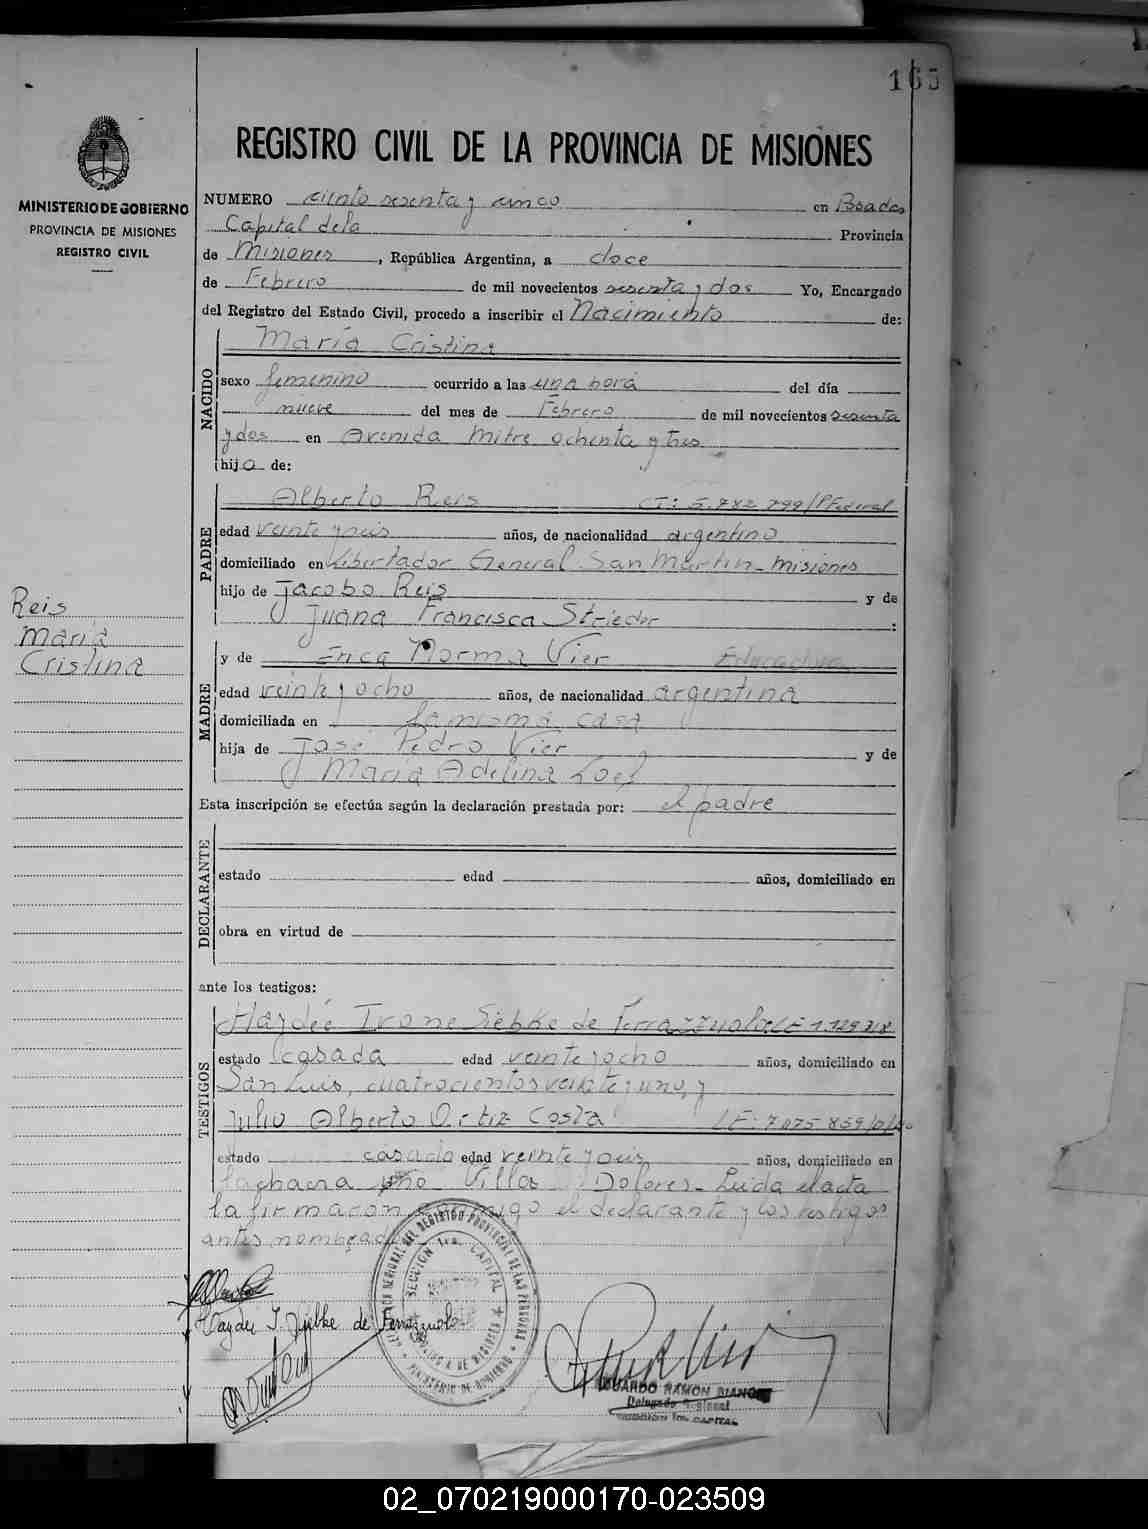 165
REGISTRO CIVIL DE LA PROVINCIA DE MISIONES
MINISTERIO DE GOBIERNO
PROVINCIA DE MISIONES
REGISTRO CIVIL
NUMERO ciento sesenta y cinco en Posadas
Capital de la Provincia
de Misiones, República Argentina, a doce
de Febrero de mil novecientos sesenta y dos Yo, Encargado
del Registro del Estado Civil, procedo a inscribir el Nacimiento de:
NACIDO
María Cristina
sexo femenino ocurrido a las una hora del día
nueve del mes de Febrero de mil novecientos sesenta
y dos en Avenida Mitre ochenta y tres
hija de:
PADRE
Alberto Reis CI: 5.782.799/P Federal
edad veinte y seis años, de nacionalidad argentino
domiciliado en Libertador General San Martin - Misiones
hijo de Jacobo Reis y de
Juana Francisca Strieder :
Reis
María
Cristina
MADRE
y de Erica Norma Vier
edad veinte y ocho años, de nacionalidad argentina
domiciliada en la misma casa
hija de José Pedro Vier y de
María Adelina
Esta inscripción se efectúa según la declaración prestada por: el padre
DECLARANTE
estado edad años, domiciliado en
obra en virtud de
ante los testigos:
TESTIGOS
Haydée Irone Siebke de Ferrazzuolo LE 1.129.718
estado casada edad veinte y ocho años, domiciliado en
San Luis, cuatrocientos veinte y uno, y
Julio Alberto Ortiz Costa LE: 7.075.859
estado casado edad veinte y seis años, domiciliado en
la chacra Villa Dolores - Leida el acta
la firmaron conmigo el declarante y los testigos
antes nombrados
Haydée I. Siebke de Ferrazzuolo
SECCION 1ra. CAPITAL
MINISTERIO DE GOBIERNO
EDUARDO RAMON BIANCHI
Delegado Regional
CAPITAL
02_070219000170-023509